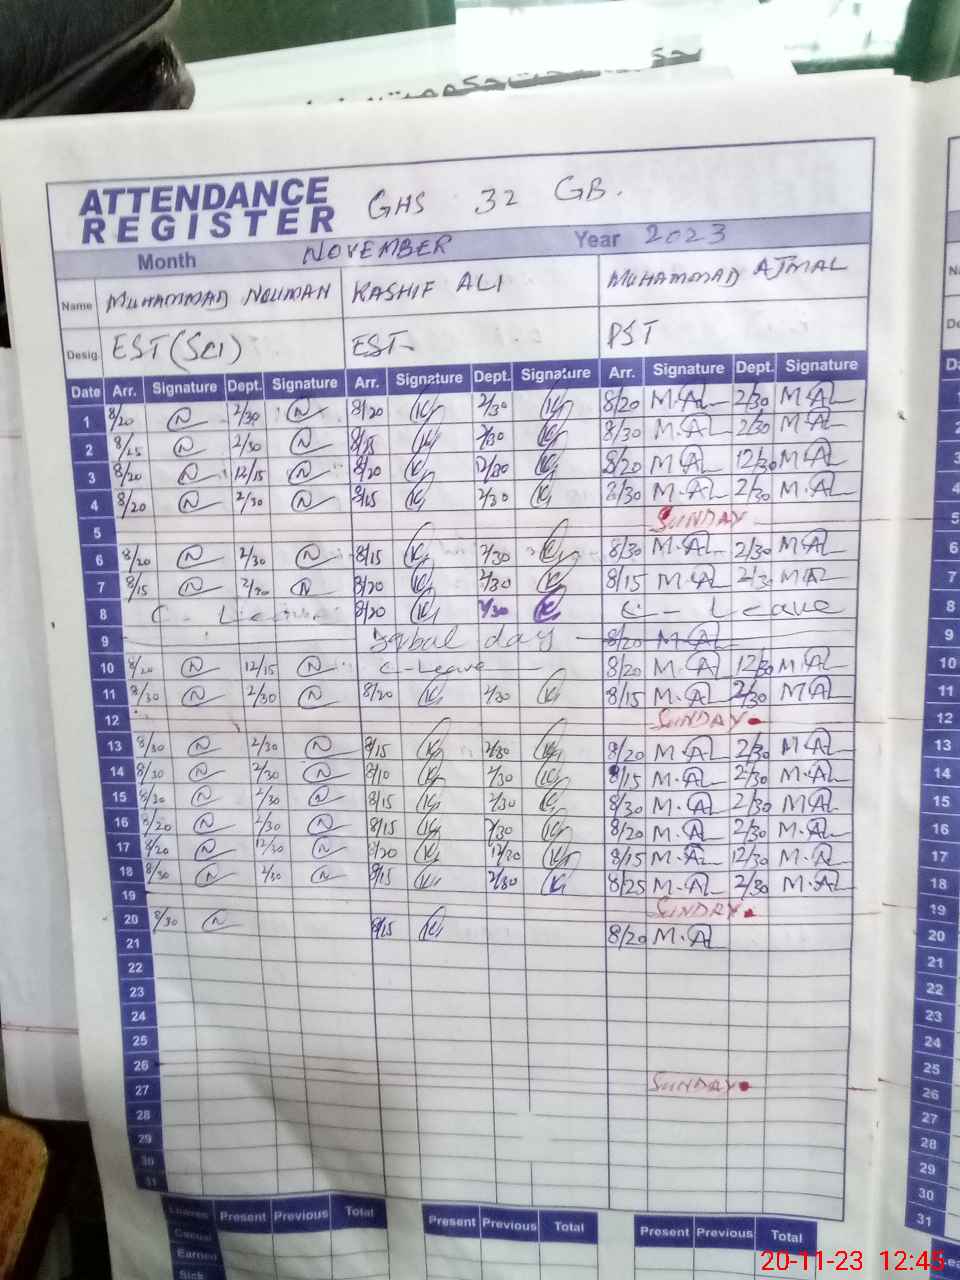 ATTENDANCE REGISTER GHS 32 GB.
Month NOVEMBER Year 2023
Name MUHAMMAD NOUMAN KASHIF ALI MUHAMMAD AJMAL
Desig. EST(SCI) EST PST
Date Arr. Signature Dept. Signature Arr. Signature Dept. Signature Arr. Signature Dept. Signature
1 8/20 N 2/30 N 8/20 K 2/30 K 8/20 M.AL 2/30 M.AL
2 8/25 N 2/30 N 8/15 K 2/30 K 8/30 M.AL 2/30 M.AL
3 8/20 N 12/15 N 8/20 K 12/30 K 8/20 M.AL 12/30 M.AL
4 8/20 N 2/30 N 8/15 K 2/30 K M.AL 2/30 M.AL
5 SUNDAY
6 8/20 N 2/30 N 8/15 K 2/30 K 8/30 M.AL 2/30 M.AL
7 8/15 N N 8/20 K 2/30 K 8/15 M.AL 2/30 M.AL
8 C - Leave 8/20 K 2/30 K C - Leave
9 Iqbal day 8/20 M.AL
10 8/20 N 12/15 N C-Leave 8/20 M.AL 12/30 M.AL
11 8/30 N 2/30 N 8/20 K 2/30 K 8/15 M.AL 2/30 M.AL
12 SUNDAY
13 8/30 N 2/30 N 8/15 K 2/30 K 8/20 M.AL 2/30 M.AL
14 8/30 N 2/30 N 8/10 K 2/30 K 8/15 M.AL 2/30 M.AL
15 8/30 N 2/30 N 8/15 K 2/30 K 8/30 M.AL 2/30 M.AL
16 8/20 N 2/30 N 8/15 K 2/30 K 8/20 M.AL 2/30 M.AL
17 8/20 N 12/30 N 8/20 K 12/30 K 8/15 M.AL 12/30 M.AL
18 8/30 N 2/30 N 8/15 K 2/30 K 8/25 M.AL 2/30 M.AL
19 SUNDAY
20 8/30 N 8/15 K 8/20 M.AL
21
22
23
24
25
26 SUNDAY
27
28
29
30
31
Leaves Present Previous Total Present Previous Total Present Previous Total
Casual
Earned
Sick
20-11-23 12:45